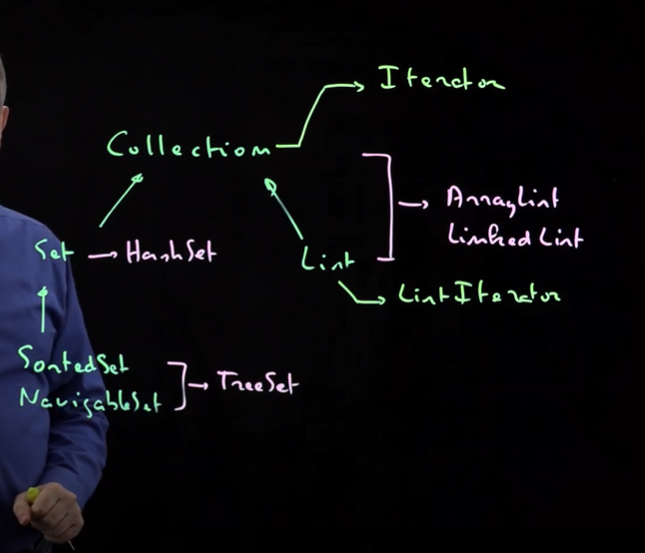 Iterator
Collection
ArrayList
LinkedList
Set
HashSet
List
ListIterator
SortedSet
NavigableSet
TreeSet